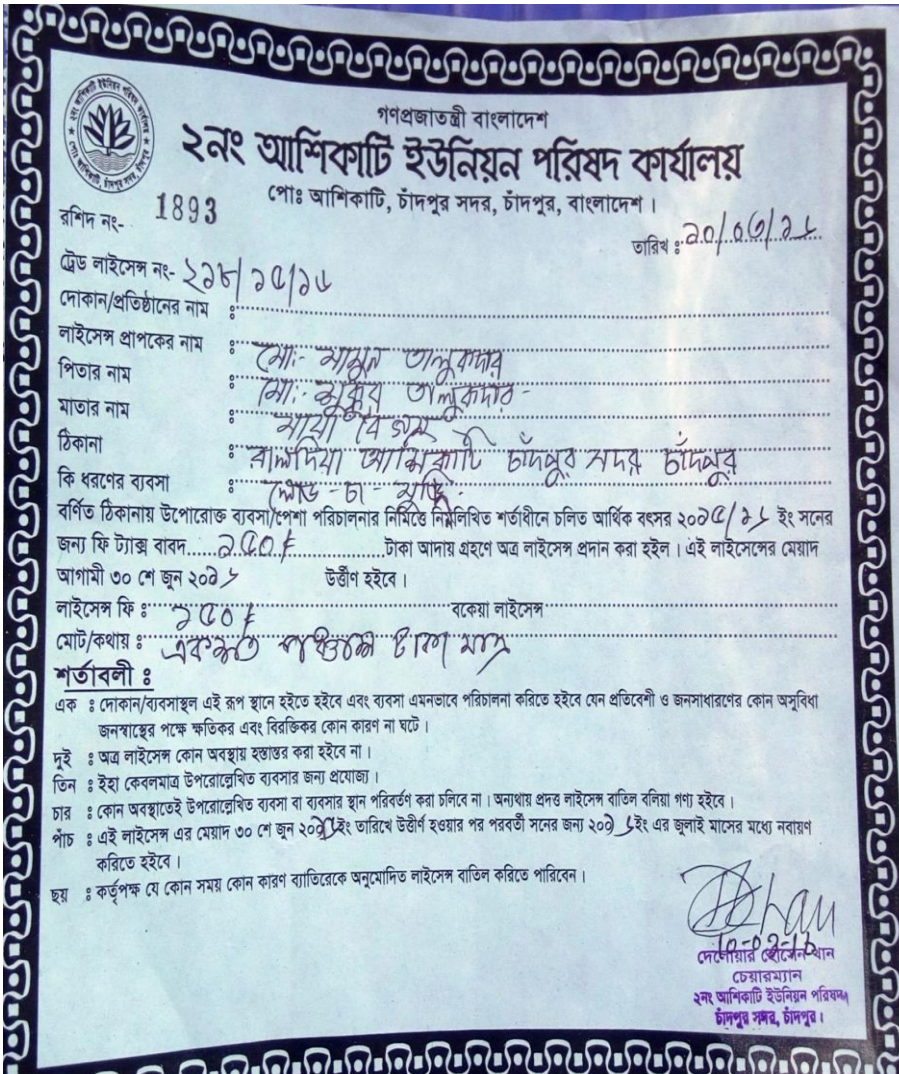 গণপ্রজাতন্ত্রী বাংলাদেশ
২নং আশিকাটি ইউনিয়ন পরিষদ কার্যালয়
পোঃ আশিকাটি, চাঁদপুর সদর, চাঁদপুর, বাংলাদেশ।
রশিদ নং- 1893
তারিখ ঃ ১০/০৩/১৬
ট্রেড লাইসেন্স নং- ২১৮/১৫/১৬
দোকান/প্রতিষ্ঠানের নাম ঃ
লাইসেন্স প্রাপকের নাম ঃ মোঃ- মামুন তালুকদার
পিতার নাম ঃ মোঃ- তালুকদার-
মাতার নাম ঃ মায়া বেগম
ঠিকানা ঃ রালদিয়া আশিকাটি চাঁদপুর সদর চাঁদপুর
কি ধরণের ব্যবসা ঃ -চা-মুদি-
বর্ণিত ঠিকানায় উপোরোক্ত ব্যবসা/পেশা পরিচালনার নিমিত্তে নিম্নলিখিত শর্তাধীনে চলিত আর্থিক বৎসর ২০১৫/১৬ ইং সনের
জন্য ফি ট্যাক্স বাবদ.....১৫০৳..........টাকা আদায় গ্রহণে অত্র লাইসেন্স প্রদান করা হইল। এই লাইসেন্সের মেয়াদ
আগামী ৩০ শে জুন ২০১৬ উর্ত্তীণ হইবে।
লাইসেন্স ফি ঃ ১৫০৳ বকেয়া লাইসেন্স
মোট/কথায় ঃ একশত পঞ্চাশ টাকা মাত্র
শর্তাবলী ঃ
এক ঃ দোকান/ব্যবসাস্থল এই রূপ স্থানে হইতে হইবে এবং ব্যবসা এমনভাবে পরিচালনা করিতে হইবে যেন প্রতিবেশী ও জনসাধারণের কোন অসুবিধা
জনস্বাস্থের পক্ষে ক্ষতিকর এবং বিরক্তিকর কোন কারণ না ঘটে।
দুই ঃ অত্র লাইসেন্স কোন অবস্থায় হস্তান্তর করা হইবে না।
তিন ঃ ইহা কেবলমাত্র উপরোল্লেখিত ব্যবসার জন্য প্রযোজ্য।
চার ঃ কোন অবস্থাতেই উপরোল্লেখিত ব্যবসা বা ব্যবসার স্থান পরিবর্তণ করা চলিবে না। অন্যথায় প্রদত্ত লাইসেন্স বাতিল বলিয়া গণ্য হইবে।
পাঁচ ঃ এই লাইসেন্স এর মেয়াদ ৩০ শে জুন ২০১৬ইং তারিখে উর্ত্তীণ হওয়ার পর পরবর্তী সনের জন্য ২০১৬ইং এর জুলাই মাসের মধ্যে নবায়ণ
করিতে হইবে।
ছয় ঃ কর্তৃপক্ষ যে কোন সময় কোন কারণ ব্যাতিরেকে অনুমোদিত লাইসেন্স বাতিল করিতে পারিবেন।
10-03-16
দেলোয়ার হোসেন খান
চেয়ারম্যান
২নং আশিকাটি ইউনিয়ন পরিষদ
চাঁদপুর সদর, চাঁদপুর।